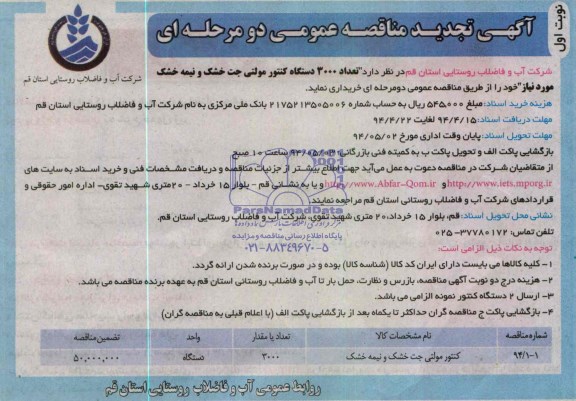 نوبت اول
آگهی تجدید مناقصه عمومی دو مرحله ای
شرکت آب و فاضلاب روستایی استان قم
شرکت آب و فاضلاب روستایی استان قم در نظر دارد "تعداد ۳۰۰۰ دستگاه کنتور مولتی جت خشک و نیمه خشک
مورد نیاز" خود را از طریق مناقصه عمومی دومرحله ای خریداری نماید.
هزینه خرید اسناد: مبلغ ۵۴۵۰۰۰ ریال به حساب شماره ۲۱۷۵۲۱۳۵۰۵۰۰۶ بانک ملی مرکزی به نام شرکت آب و فاضلاب روستایی استان قم
مهلت دریافت اسناد: ۹۴/۴/۱۵ لغایت ۹۴/۴/۲۲
مهلت تحویل اسناد: پایان وقت اداری مورخ ۹۴/۰۵/۰۲
بازگشایی پاکت الف و تحویل پاکت ب به کمیته فنی بازرگانی: ساعت ۱۰ صبح
از متقاضیان شرکت در مناقصه دعوت به عمل می‌آید جهت اطلاع بیشتر از جزئیات مناقصه و دریافت مشخصات فنی و خرید اسناد به سایت های
http://www.iets.mporg.ir و http://www.Abfar-Qom.ir و یا به نشانی قم - بلوار ۱۵ خرداد - ۲۰متری شهید تقوی- اداره امور حقوقی و
قراردادهای شرکت آب و فاضلاب روستایی استان قم مراجعه نمایند.
نشانی محل تحویل اسناد: قم، بلوار ۱۵ خرداد، ۲۰ متری شهید تقوی، شرکت آب و فاضلاب روستایی استان قم.
تلفن تماس: ۳۷۷۸۰۱۷۲-۰۲۵
ParsNamadData
پایگاه اطلاع رسانی مناقصه و مزایده
۰۲۱-۸۸۳۴۹۶۷۰-۵
توجه به نکات ذیل الزامی است:
۱- کلیه کالاها می بایست دارای ایران کد کالا (شناسه کالا) بوده و در صورت برنده شدن ارائه گردد.
۲- هزینه درج دو نوبت آگهی مناقصه، بازرس و نظارت، حمل بار تا آب و فاضلاب روستائی استان قم به عهده برنده مناقصه می باشد.
۳- ارسال ۲ دستگاه کنتور نمونه الزامی می باشد.
۴- بازگشایی پاکت ج مناقصه گران حداکثر تا یکماه بعد از بازگشایی پاکت الف (با اعلام قبلی به مناقصه گران)
شماره مناقصه نام مشخصات کالا تعداد یا مقدار واحد تضمین مناقصه
۹۴/۱-۱ کنتور مولتی جت خشک و نیمه خشک ۳۰۰۰ دستگاه ۵۰,۰۰۰,۰۰۰
روابط عمومی آب و فاضلاب روستایی استان قم